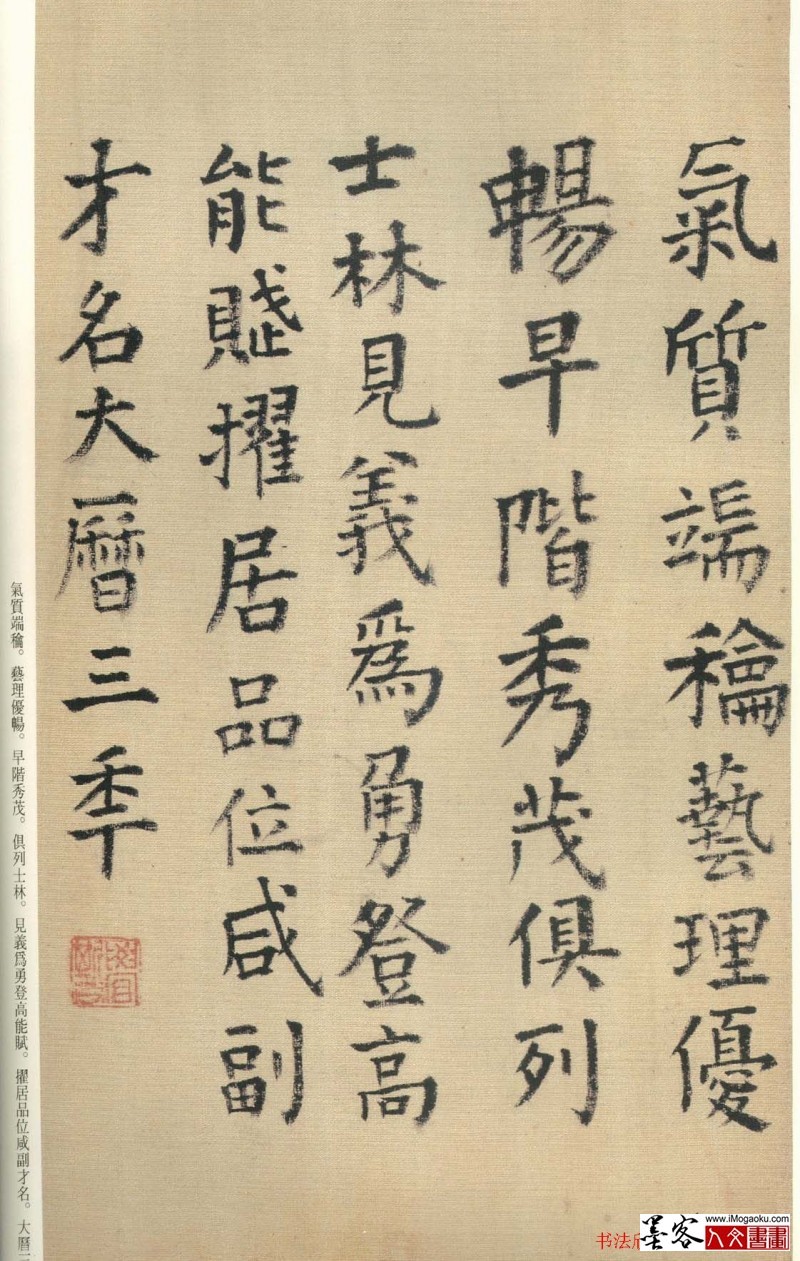 氣質端穐藝理優
暢早階秀茂俱列
士林見義為勇登高
能賦擢居品位咸副
才名大曆三秊
氣質端穐。藝理優暢。早階秀茂。俱列士林。見義爲勇登高能賦。擢居品位咸副才名。大曆三
书法欣
墨客
www.iMogaoku.com
人文書畫